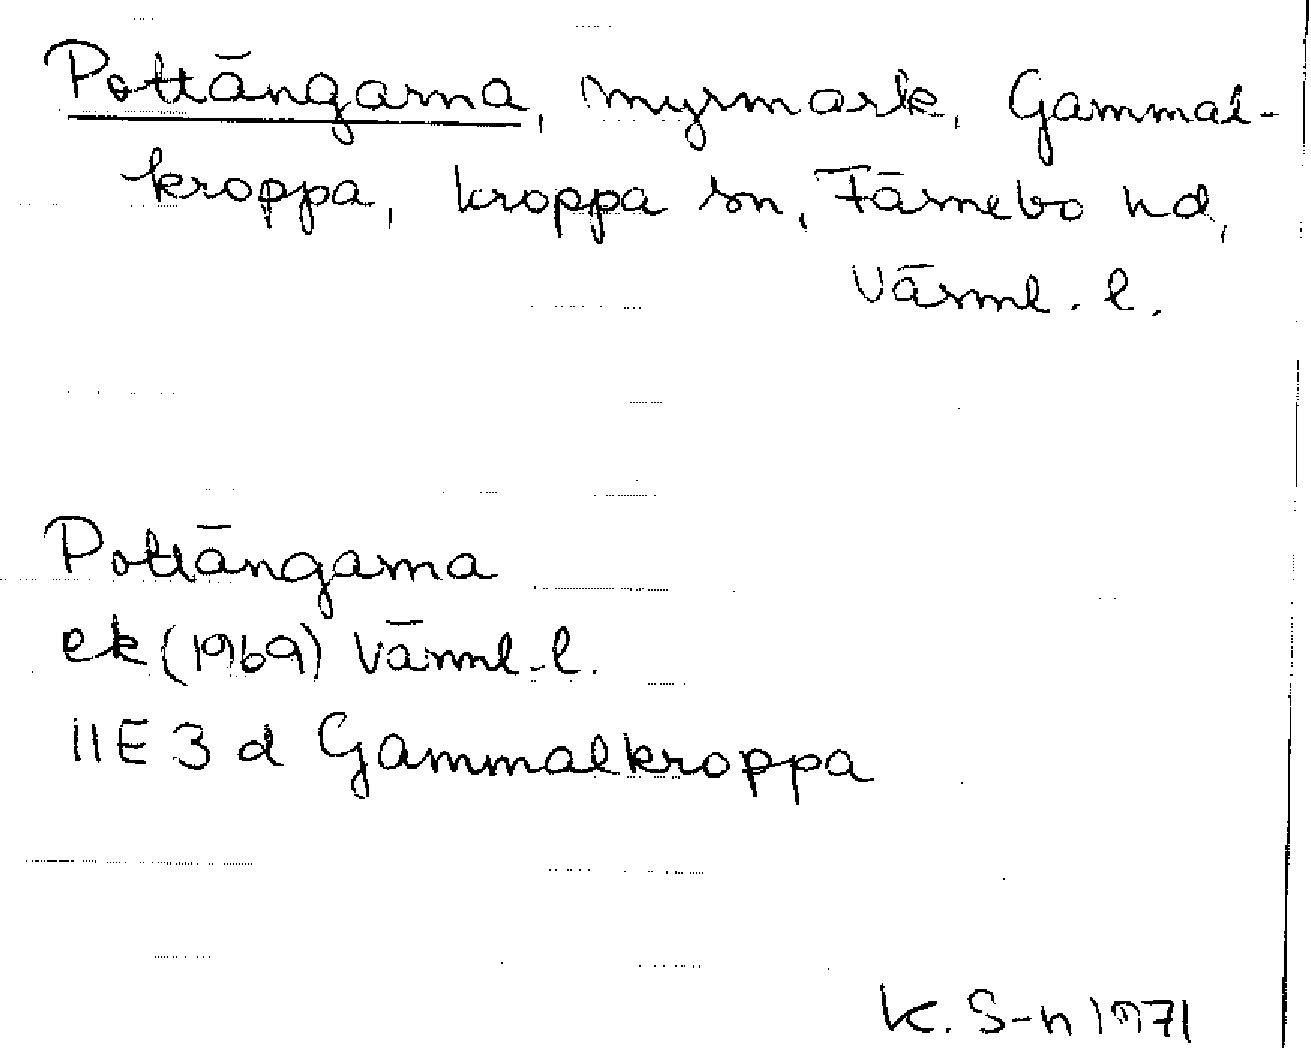 Pottängarna, myrmark, Gammal-
kroppa, kroppa sn, Färnebo hd,
Värml. l.
Pottängarna
ek (1969) Värml. l.
11E 3 d Gammalkroppa
K. S-n 1971